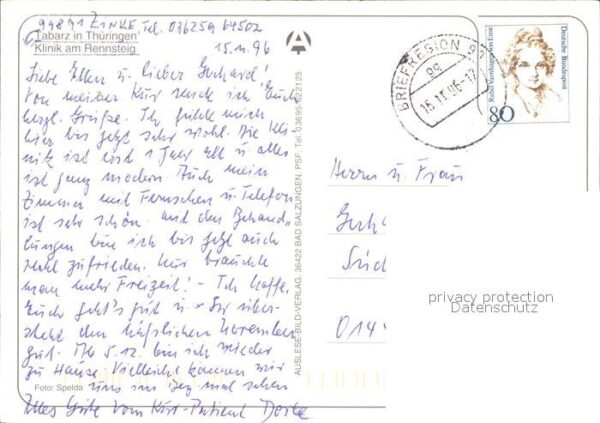 99891 Tel. 036259 64502
Tabarz in Thüringen
Klinik am Rennsteig
15.11.96
Liebe Ellen u. lieber Gerhard!
Von meiner Kur sende ich Euch
herzl. Grüße. Ich fühle mich
hier bis jetzt sehr wohl. Die Kli-
nik ist erst 1 Jahr alt u. alles
ist ganz modern. Auch mein
Zimmer mit Fernsehen u. Telefon
ist sehr schön. und den Behand-
lungen bin ich bis jetzt auch
recht zufrieden. Nur brauchte
man mehr Freizeit! - Ich hoffe,
Euch geht's gut u. Ihr über-
steht den häßlichen November
gut. Ab 5.12. bin ich wieder
zu Hause. Vielleicht können wir
uns im mal sehen
Alles Gute vom Kur-Patient
Foto: Spelda
AUSLESE-BILD-VERLAG, 36422 BAD SALZUNGEN, PSF, Tel. 03695/622125
BRIEFREGION 99
99
15.11.96-17
Deutsche Bundespost
Rahel Varnhagen von Ense
80
Herrn u. Frau
Gerh
Süd
privacy protection
Datenschutz
014